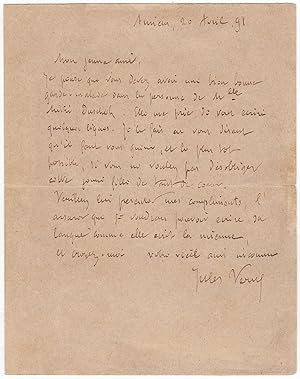 Amiens, 20 Avril 91
Mon jeune ami,
Je pense que vous devez avoir une bien bonne
garde-malade dans la personne de Mlle
Mitzi . Elle me prie de vous écrire
quelques lignes. Je le fais en vous disant
qu'il faut vous guérir, et le plus tôt
possible, si vous ne voulez pas désobliger
cette jeune fille de tout de coeur.
Veuillez lui présenter mes compliments, l'
assurer que je voudrais pouvoir écrire sa
langue comme elle écrit la mienne,
et croyez-moi votre vieil ami inconnu
Jules Verne